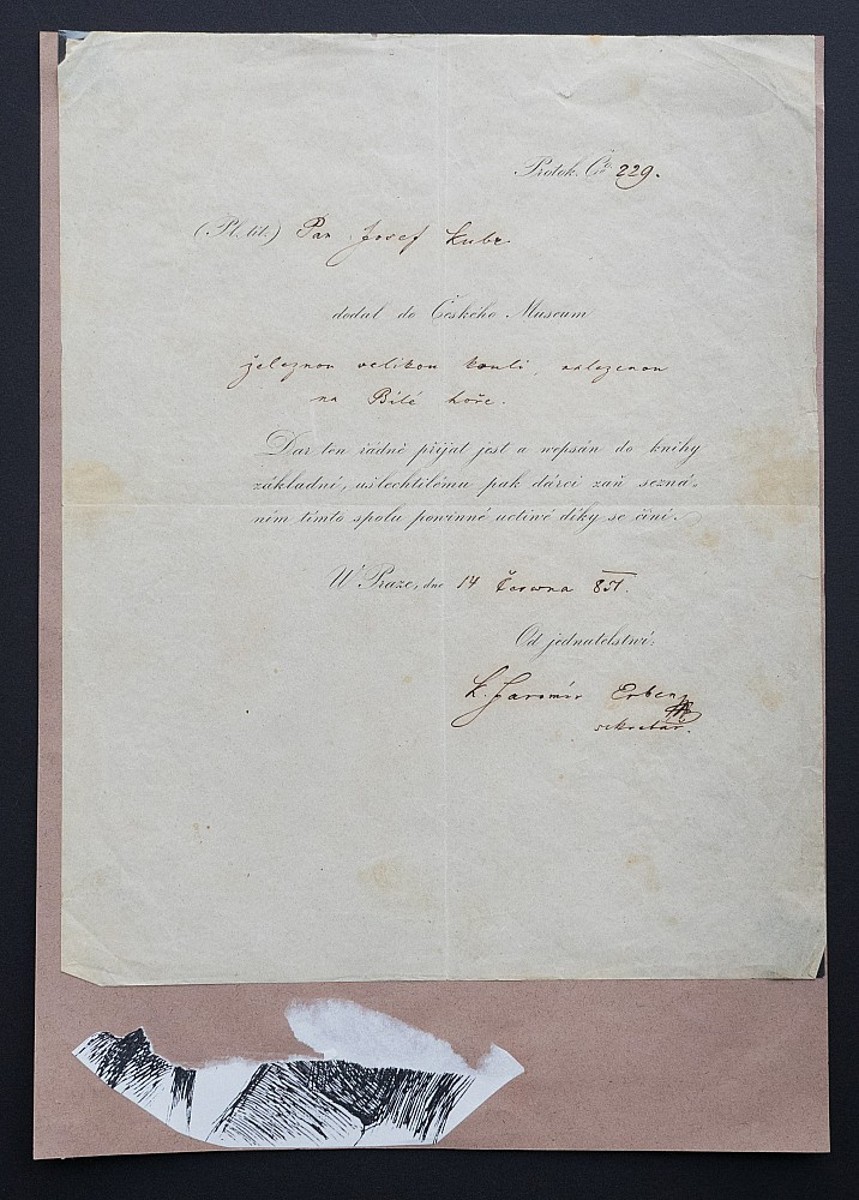 Protok. Čo. 229.
(Pl. tit.) Pan Josef Kubr.
dodal do Českého Museum
železnou velikou kouli, nalezenou
na Bílé hoře.
Dar ten řádně přijat jest a wepsán do knihy
základní, ušlechtilému pak dárci zaň sezná-
ním tímto spolu powinné uctiwé díky se činí.
W Praze, dne 14 Června 851.
Od jednatelstwí:
K. Jaromír Erben
sekretář.